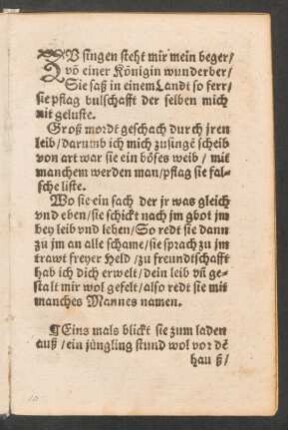 ZV singen steht mir mein beger/
vō einer Königin wunderber/
Sie saß in einem Landt so ferr/
sie pflag bulschafft der selben mich
nit geluste.
Groß mordt geschach durch jren
leib/ darumb ich mich zusingē scheib
von art war sie ein böses weib/ mit
manchem werden man/ pflag sie fal-
sche liste.
Wo sie ein sach der jr was gleich
vnd eben/ sie schickt nach jm gbot jm
bey leib vnd leben/ So redt sie dann
zu jm an alle schame/ sie sprach zu jm
trawt freyer Held/ zu freundtschafft
hab ich dich erwelt/ dein leib vn̄ ge-
stalt mir wol gefelt/ also redt sie mit
manches Mannes namen.
¶ Eins mals blickt sie zum laden
auß/ ein jüngling stund wol vor dē
hauß/